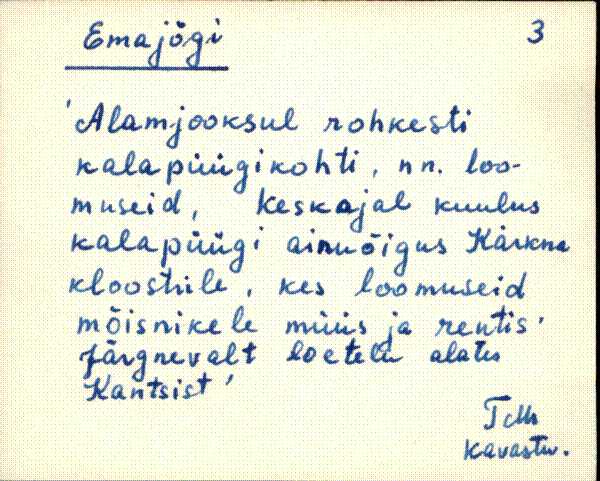 Emajõgi
3
'Alamjooksul rohkesti
kalapüügikohti, nn. loo-
museid, keskajal kuulus
kalapüügi ainuõigus Kärkna
kloostrile, kes loomuseid
mõisnikele müüs ja rentis.'
Järgnevalt loetelu alates
Kantsist'
Kavastu.